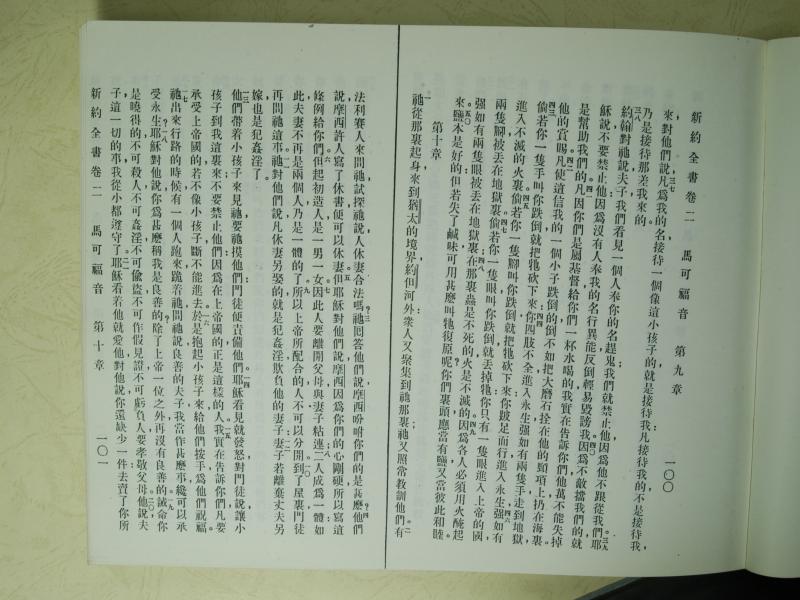 新約全書卷二 馬可福音 第九章 一〇〇
來對他們說、三七凡爲我的名接待一個像這小孩子的、就是接待我、凡接待我的、不是接待我、
乃是接待那差我來的。
三八約翰對祂說、夫子、我們看見一個人奉你的名趕鬼、我們就禁止他、因爲他不跟從我們。三九耶
穌說、不要禁止他、因爲沒有人奉我的名行異能、反倒輕易毀謗我。四〇因爲不敵擋我們的、就
是幫助我們的。四一凡因你們是屬基督、給你們一杯水喝的、我實在告訴你們、他萬不能失掉
他的賞賜。四二凡使這信我的一個小子跌倒的、倒不如把大磨石拴在他的頸項上、扔在海裏。
四三倘若你一隻手叫你跌倒、就把牠砍下來、四四你四肢不全進入永生、強如有兩隻手走到地獄、
進入不滅的火裏。四五倘若你一隻腳叫你跌倒、就把牠砍下來、四六你跛足而行進入永生、強如有
兩隻腳被丟在地獄裏。四七倘若你一隻眼叫你跌倒、就丟掉牠、你只有一隻眼進入上帝的國、
強如有兩隻眼被丟在地獄裏。四八在那裏蟲是不死的、火是不滅的。四九因爲各人必須用火醃起
來。五〇鹽本是好的、但若失了鹹味、可用甚麼叫牠復原呢、你們裏頭應當有鹽、又當彼此和睦。
第十章
祂從那裏起身、來到猶太的境界、約但河外、衆人又聚集到祂那裏、祂又照常教訓他們。二有
法利賽人來問祂試探祂、說、人休妻合法嗎？三祂回答他們說、摩西吩咐你們的是甚麼？四他們
說、摩西許人寫了休書、便可以休妻。五但耶穌對他們說、摩西因爲你們的心剛硬、所以寫這
條例給你們。六但起初造人、是一男一女、七因此人要離開父母、與妻子粘連、二人成爲一體。八如
此夫妻不再是兩個人、乃是一體的了。九所以上帝所配合的、人不可以分開。一〇到了屋裏、門徒
再問祂這事。一一祂對他們說、凡休妻另娶的、就是犯姦淫、欺負他的妻子。一二妻子若離棄丈夫另
嫁、也是犯姦淫了。
一三他們帶着小孩子來見祂、要祂摸他們、門徒便責備他們。一四耶穌看見就發怒、對門徒說、讓小
孩子到我這裏來、不要禁止他們、因爲在上帝國的、正是這樣的人。一五我實在告訴你們、凡要
承受上帝國的、若不像小孩子、斷不能進去。一六於是抱起小孩子來、給他們按手、爲他們祝福。
一七祂出來行路的時候、有一個人跑來、跪着祂、問祂說、良善的夫子、我當作甚麼事、纔可以承
受永生？一八耶穌對他說、你爲甚麼稱我是良善的、除了上帝一位之外、再沒有良善的。一九誡命你
是曉得的、不可殺人、不可姦淫、不可偷盜、不可作假見證、不可虧負人、要孝敬父母。二〇他說、夫
子、這一切的事、我從小都遵守了。耶穌看着他、就愛他、對他說、你還缺少一件、去賣了你所
新約全書卷二 馬可福音 第十章 一〇一